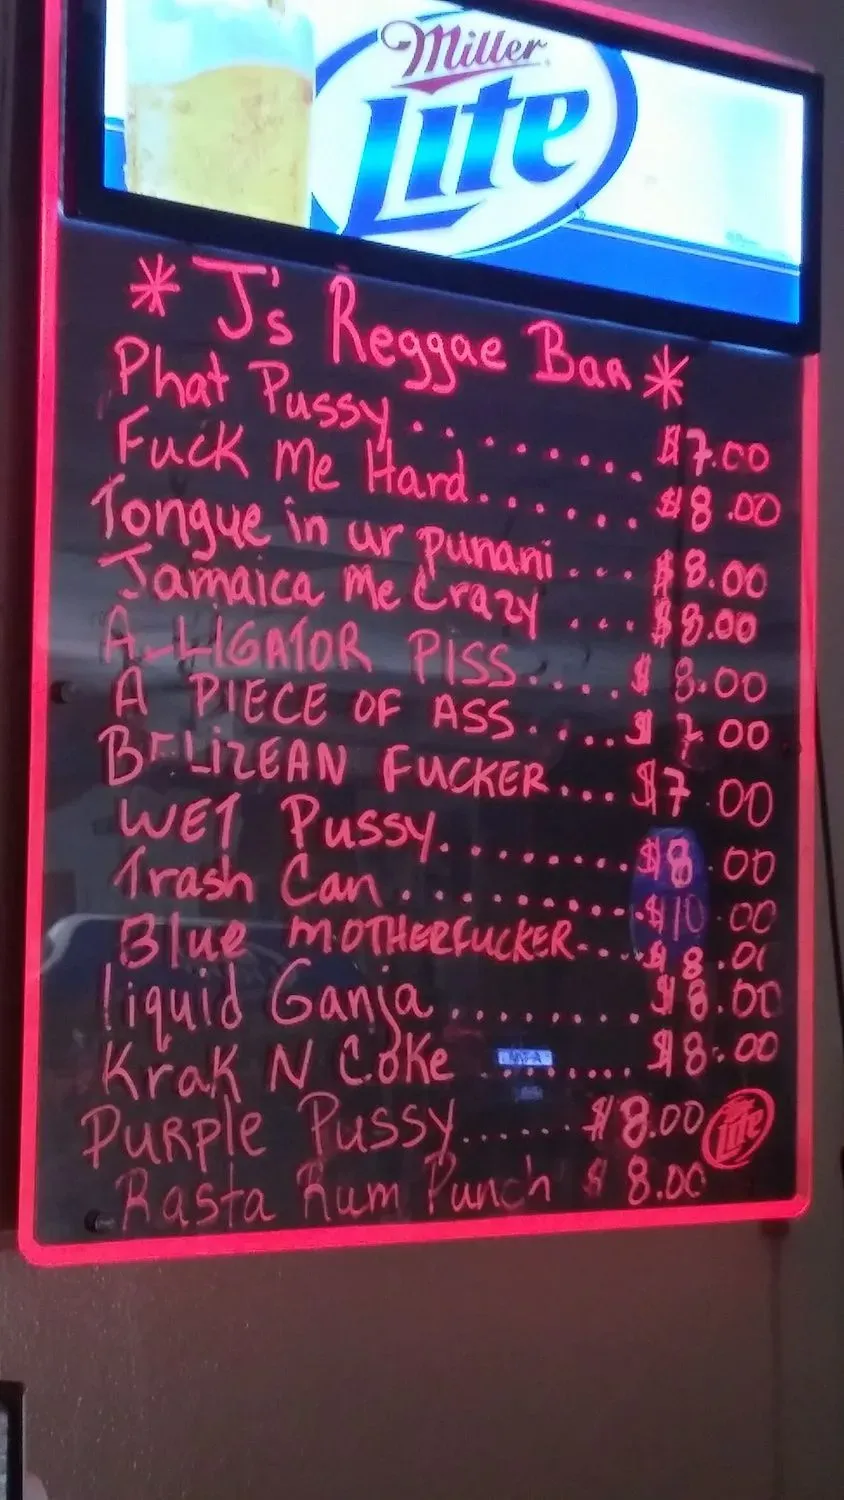 Miller
Lite
* J's Reggae Bar *
Phat Pussy........ $7.00
Fuck Me Hard...... $8.00
Tongue in ur punani... $8.00
Jamaica Me Crazy ... $8.00
ALLIGATOR PISS..... $8.00
A PIECE OF ASS..... $7.00
BELIZEAN FUCKER... $7.00
WET Pussy........ $8.00
Trash Can.......... $10.00
Blue MOTHERFUCKER.... $8.00
liquid Ganja........ $8.00
Krak N Coke ........ $8.00
Purple Pussy...... $8.00
Lite
Rasta Rum Punch $8.00